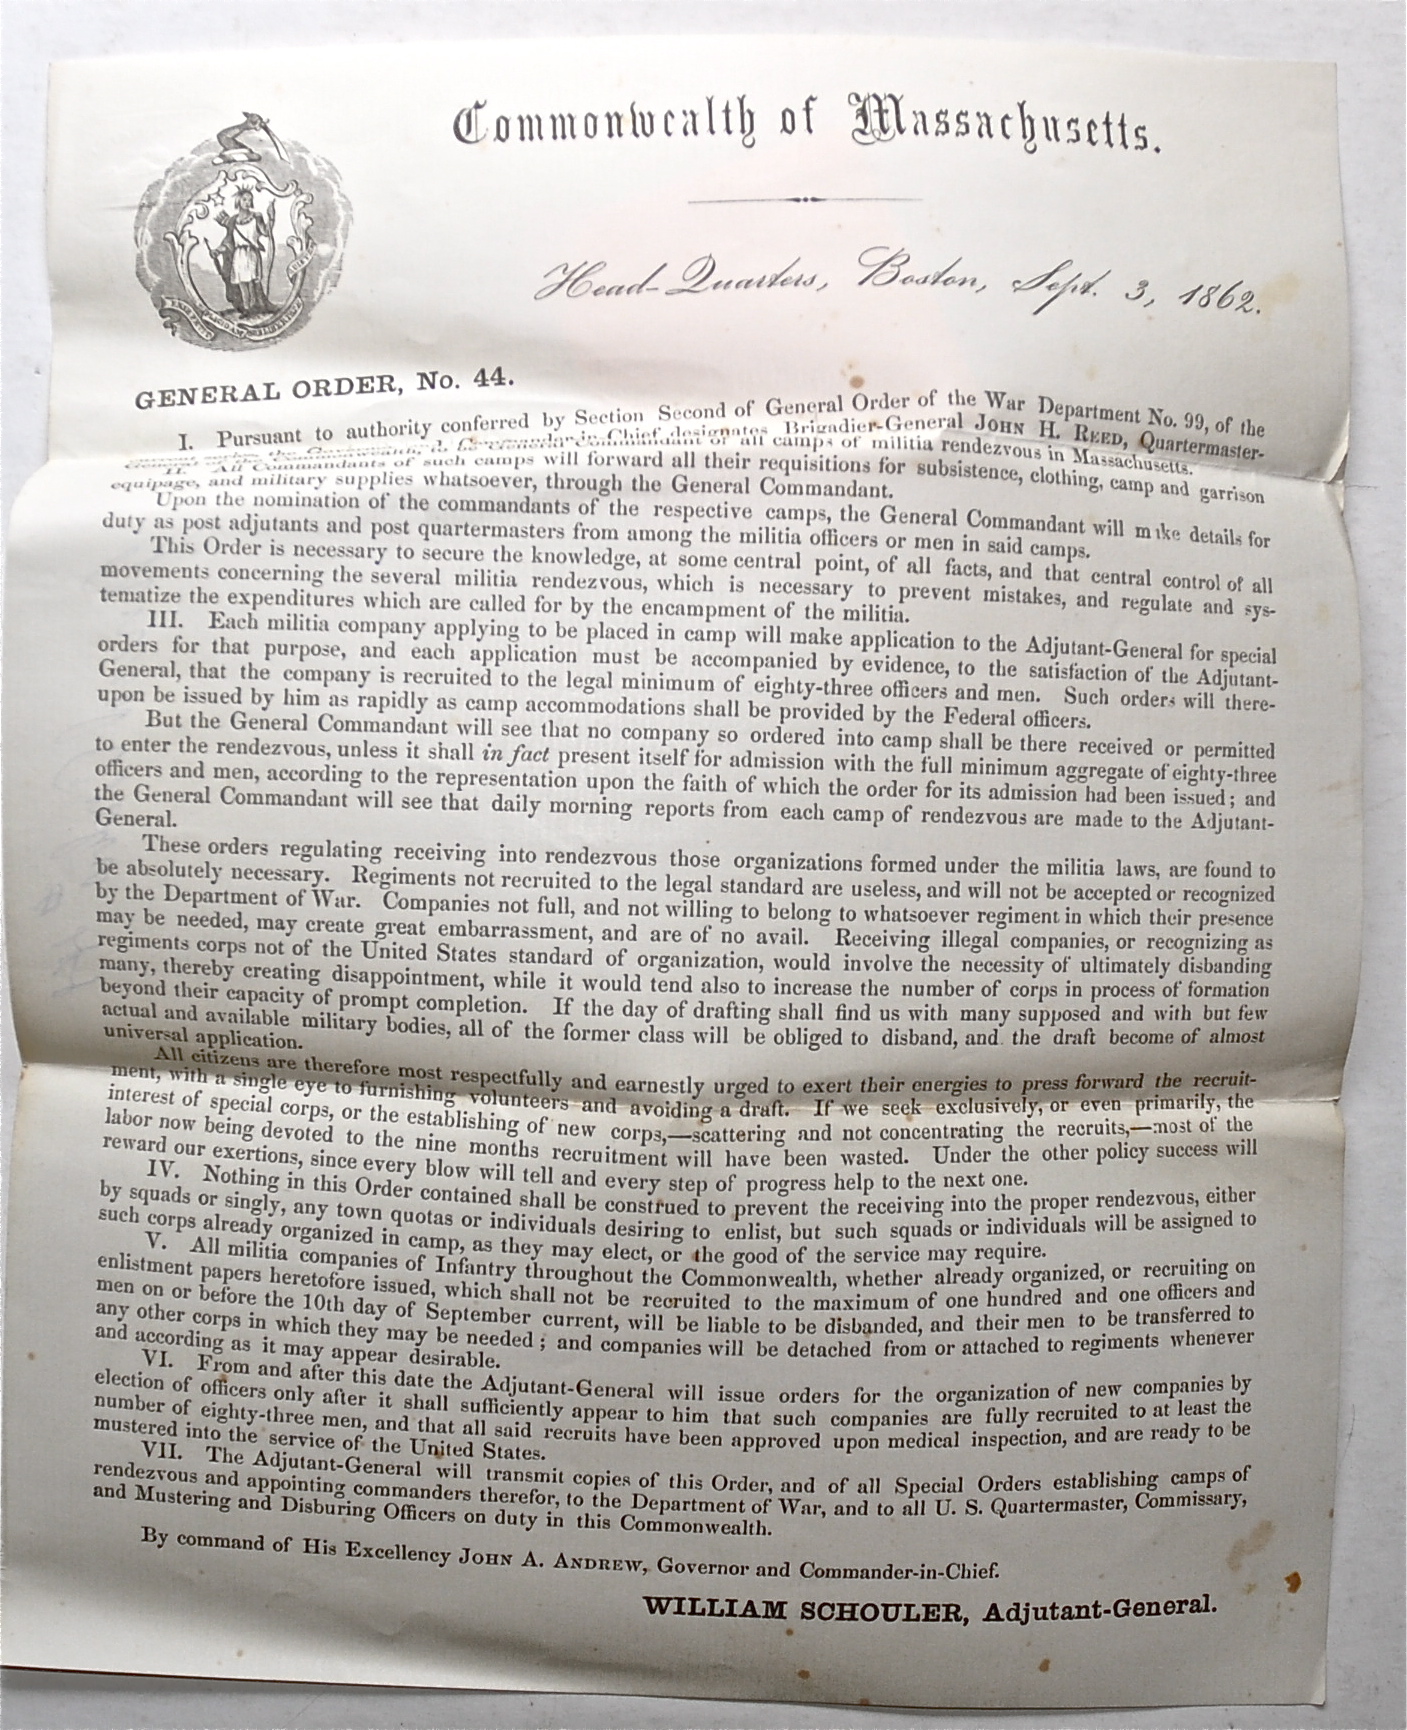 Commonwealth of Massachusetts.
Head-Quarters, Boston, Sept. 3, 1862.
GENERAL ORDER, No. 44.
I. Pursuant to authority conferred by Section Second of General Order of the War Department No. 99, of the
Commander-in-Chief designates Brigadier-General JOHN H. REED, Quartermaster-
General Commandant of all camps of militia rendezvous in Massachusetts.
II. All Commandants of such camps will forward all their requisitions for subsistence, clothing, camp and garrison
equipage, and military supplies whatsoever, through the General Commandant.
Upon the nomination of the commandants of the respective camps, the General Commandant will make details for
duty as post adjutants and post quartermasters from among the militia officers or men in said camps.
This Order is necessary to secure the knowledge, at some central point, of all facts, and that central control of all
movements concerning the several militia rendezvous, which is necessary to prevent mistakes, and regulate and sys-
tematize the expenditures which are called for by the encampment of the militia.
III. Each militia company applying to be placed in camp will make application to the Adjutant-General for special
orders for that purpose, and each application must be accompanied by evidence, to the satisfaction of the Adjutant-
General, that the company is recruited to the legal minimum of eighty-three officers and men. Such orders will there-
upon be issued by him as rapidly as camp accommodations shall be provided by the Federal officers.
But the General Commandant will see that no company so ordered into camp shall be there received or permitted
to enter the rendezvous, unless it shall in fact present itself for admission with the full minimum aggregate of eighty-three
officers and men, according to the representation upon the faith of which the order for its admission had been issued; and
the General Commandant will see that daily morning reports from each camp of rendezvous are made to the Adjutant-
General.
These orders regulating receiving into rendezvous those organizations formed under the militia laws, are found to
be absolutely necessary. Regiments not recruited to the legal standard are useless, and will not be accepted or recognized
by the Department of War. Companies not full, and not willing to belong to whatsoever regiment in which their presence
may be needed, may create great embarrassment, and are of no avail. Receiving illegal companies, or recognizing as
regiments corps not of the United States standard of organization, would involve the necessity of ultimately disbanding
many, thereby creating disappointment, while it would tend also to increase the number of corps in process of formation
beyond their capacity of prompt completion. If the day of drafting shall find us with many supposed and with but few
actual and available military bodies, all of the former class will be obliged to disband, and the draft become of almost
universal application.
All citizens are therefore most respectfully and earnestly urged to exert their energies to press forward the recruit-
ment, with a single eye to furnishing volunteers and avoiding a draft. If we seek exclusively, or even primarily, the
interest of special corps, or the establishing of new corps,—scattering and not concentrating the recruits,—most of the
labor now being devoted to the nine months recruitment will have been wasted. Under the other policy success will
reward our exertions, since every blow will tell and every step of progress help to the next one.
IV. Nothing in this Order contained shall be construed to prevent the receiving into the proper rendezvous, either
by squads or singly, any town quotas or individuals desiring to enlist, but such squads or individuals will be assigned to
such corps already organized in camp, as they may elect, or the good of the service may require.
V. All militia companies of Infantry throughout the Commonwealth, whether already organized, or recruiting on
enlistment papers heretofore issued, which shall not be recruited to the maximum of one hundred and one officers and
men on or before the 10th day of September current, will be liable to be disbanded, and their men to be transferred to
any other corps in which they may be needed; and companies will be detached from or attached to regiments whenever
and according as it may appear desirable.
VI. From and after this date the Adjutant-General will issue orders for the organization of new companies by
election of officers only after it shall sufficiently appear to him that such companies are fully recruited to at least the
number of eighty-three men, and that all said recruits have been approved upon medical inspection, and are ready to be
mustered into the service of the United States.
VII. The Adjutant-General will transmit copies of this Order, and of all Special Orders establishing camps of
rendezvous and appointing commanders therefor, to the Department of War, and to all U. S. Quartermaster, Commissary,
and Mustering and Disburing Officers on duty in this Commonwealth.
By command of His Excellency JOHN A. ANDREW, Governor and Commander-in-Chief.
WILLIAM SCHOULER, Adjutant-General.